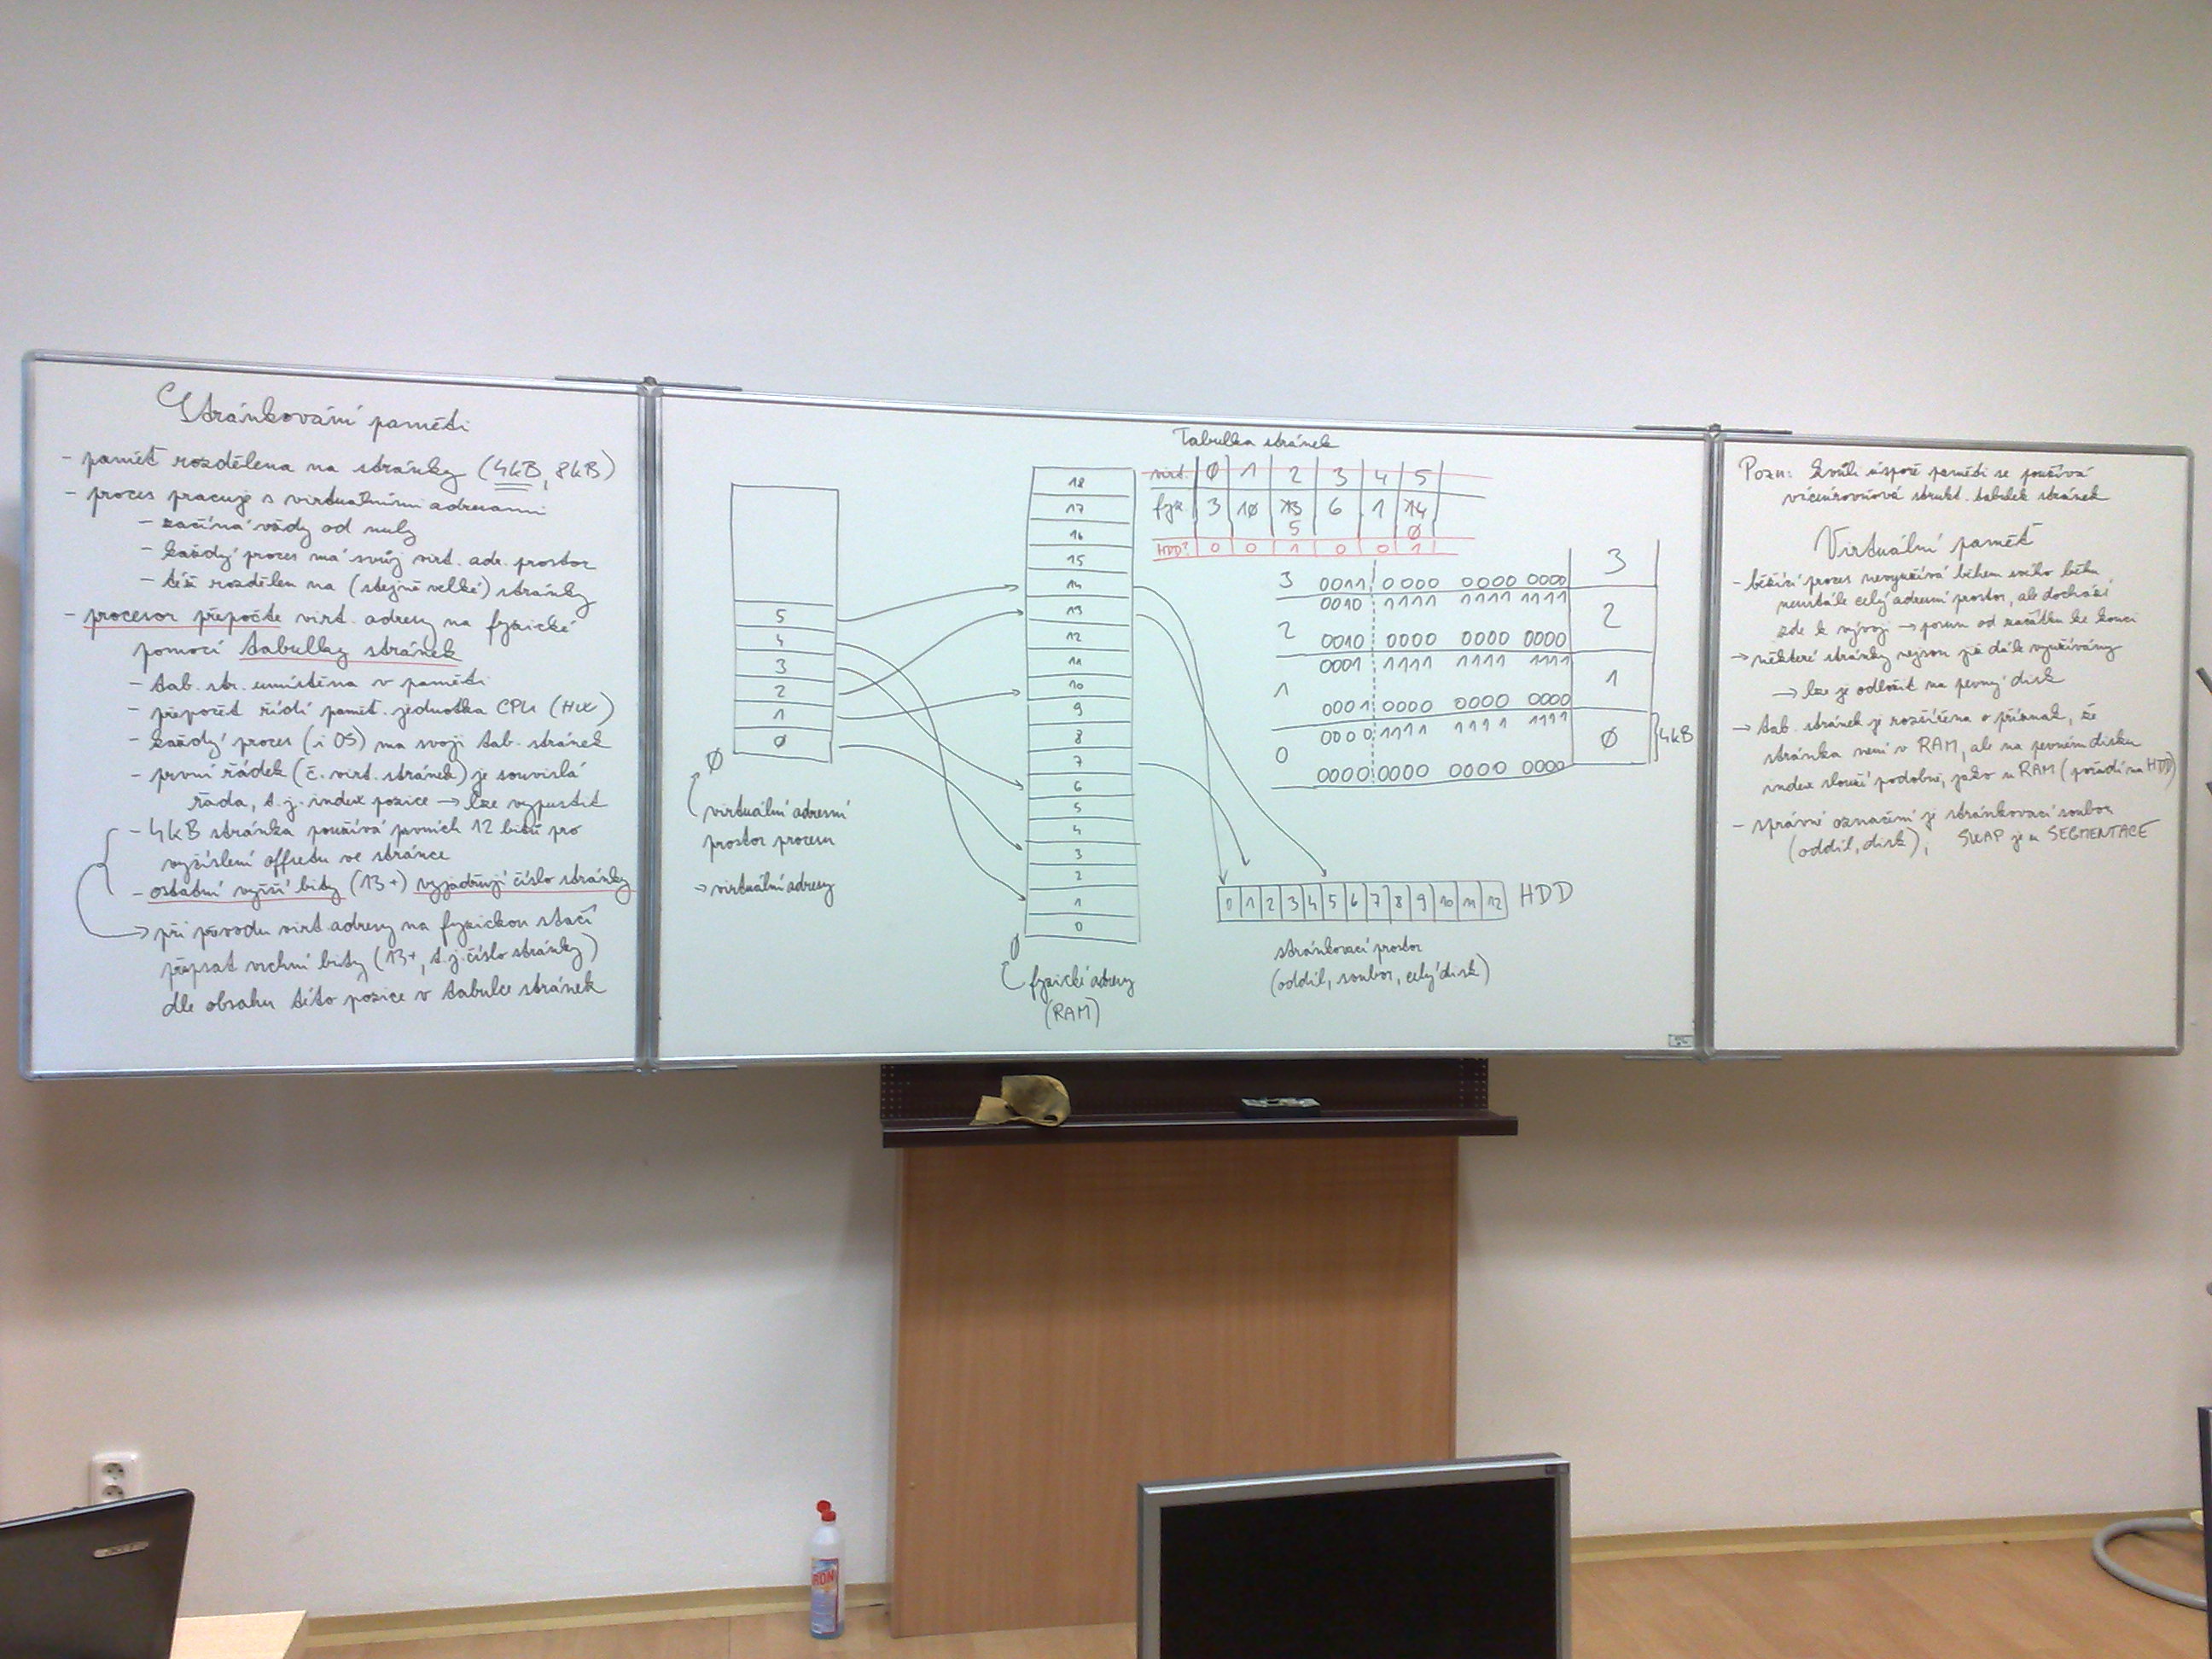 Stránkování paměti
- paměť rozdělena na stránky (4kB, 8kB)
- proces pracuje s virtuálními adresami
- začíná vždy od nuly
- každý proces má svůj virt. adr. prostor
- též rozdělen na (stejně velké) stránky
- procesor přepočte virt. adresy na fyzické
pomocí tabulky stránek
- tab. str. umístěna v paměti
- přepočet řídí paměť. jednotka CPU (HW)
- každý proces (i OS) má svoji tab. stránek
- první řádek (č. virt. stránek) je souvislá
řada, t.j. index pozice → lze vypustit
- 4kB stránka používá prvních 12 bitů pro
vyčíslení offsetu ve stránce
- ostatní vyšší bity (13+) vyjadřují číslo stránky
→ při převodu virt. adresy na fyzickou stačí
přepsat vrchní bity (13+, t.j. číslo stránky)
dle obsahu této pozice v tabulce stránek
5
4
3
2
1
0
0
virtuální adresní
prostor procesu
→ virtuální adresy
18
17
16
15
14
13
12
11
10
9
8
7
6
5
4
3
2
1
0
0
fyzické adresy
(RAM)
Tabulka stránek
virt. 0 1 2 3 4 5
fyz. 3 10 13 6 1 14
5 0
HDD? 0 0 1 0 0 1
3 0011 0000 0000 0000 3
0010 1111 1111 1111
2 0010 0000 0000 0000 2
0001 1111 1111 1111
1 0001 0000 0000 0000 1
0000 1111 1111 1111
0 0000 0000 0000 0000 0 4kB
0 1 2 3 4 5 6 7 8 9 10 11 12 HDD
stránkovací prostor
(oddíl, soubor, celý disk)
Pozn: Kvůli úspoře paměti se používá
víceúrovňová strukt. tabulek stránek
Virtuální paměť
- běžící proces nevyužívá během svého běhu
neustále celý adresní prostor, ale dochází
zde k vývoji → posun od začátku ke konci
→ některé stránky nejsou již dále využívány
→ lze je odložit na pevný disk
→ tab. stránek je rozšířena o příznak, že
stránka není v RAM, ale na pevném disku
index slouží podobně, jako u RAM (pořadí na HDD)
- správné označení je stránkovací soubor
(oddíl, disk), SWAP je u SEGMENTACE